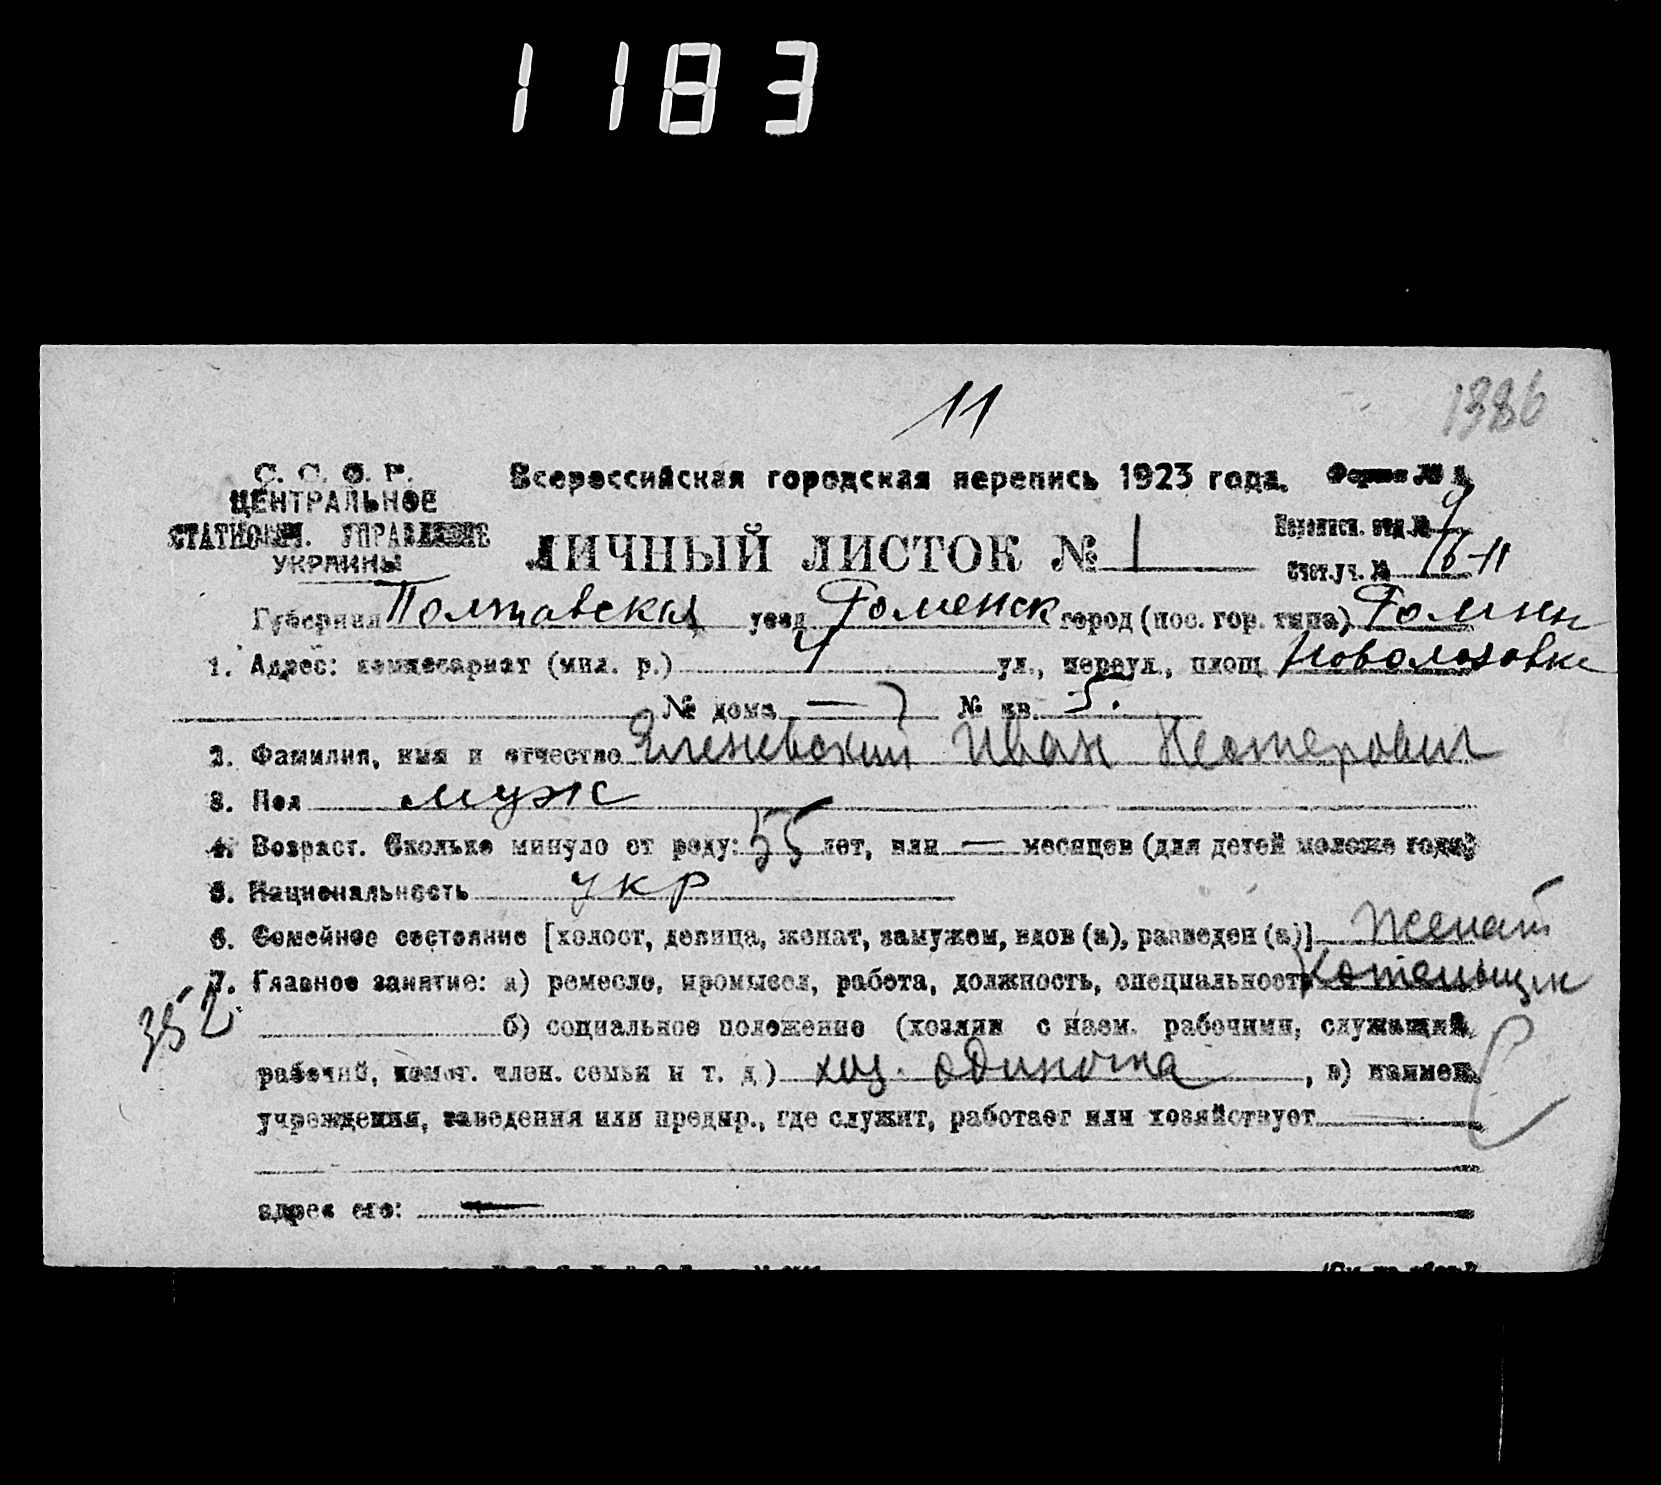 1183
11
1386
С. С. С. Р.
ЦЕНТРАЛЬНОЕ
СТАТИСТИЧ. УПРАВЛЕНИЕ
УКРАИНЫ
Всероссийская городская перепись 1923 года. Форма №
ЛИЧНЫЙ ЛИСТОК № 1
Переписн. отд. № 9
Счет. уч. № 16-11
Губерния Полтавская уезд Роменск город (пос. гор. типа) Ромны
1. Адрес: комиссариат (мил. р.) 4 ул., переул., площ.
№ дома — 7 № кв. 5.
2. Фамилия, имя и отчество Иван Нестерович
3. Пол муж
4. Возраст. Сколько минуло от роду: 55 лет, или — месяцев (для детей моложе года)
5. Национальность укр
6. Семейное состояние [холост, девица, женат, замужем, вдов (а), разведен (а)] Женат
352
7. Главное занятие: а) ремесло, промысел, работа, должность, специальность
б) социальное положение (хозяин с наем. рабочими, служащий,
рабочий, помог. член. семьи и т. д.) хоз. одиночка, в) наимен.
учреждения, заведения или предпр., где служит, работает или хозяйствует —
адрес его: —